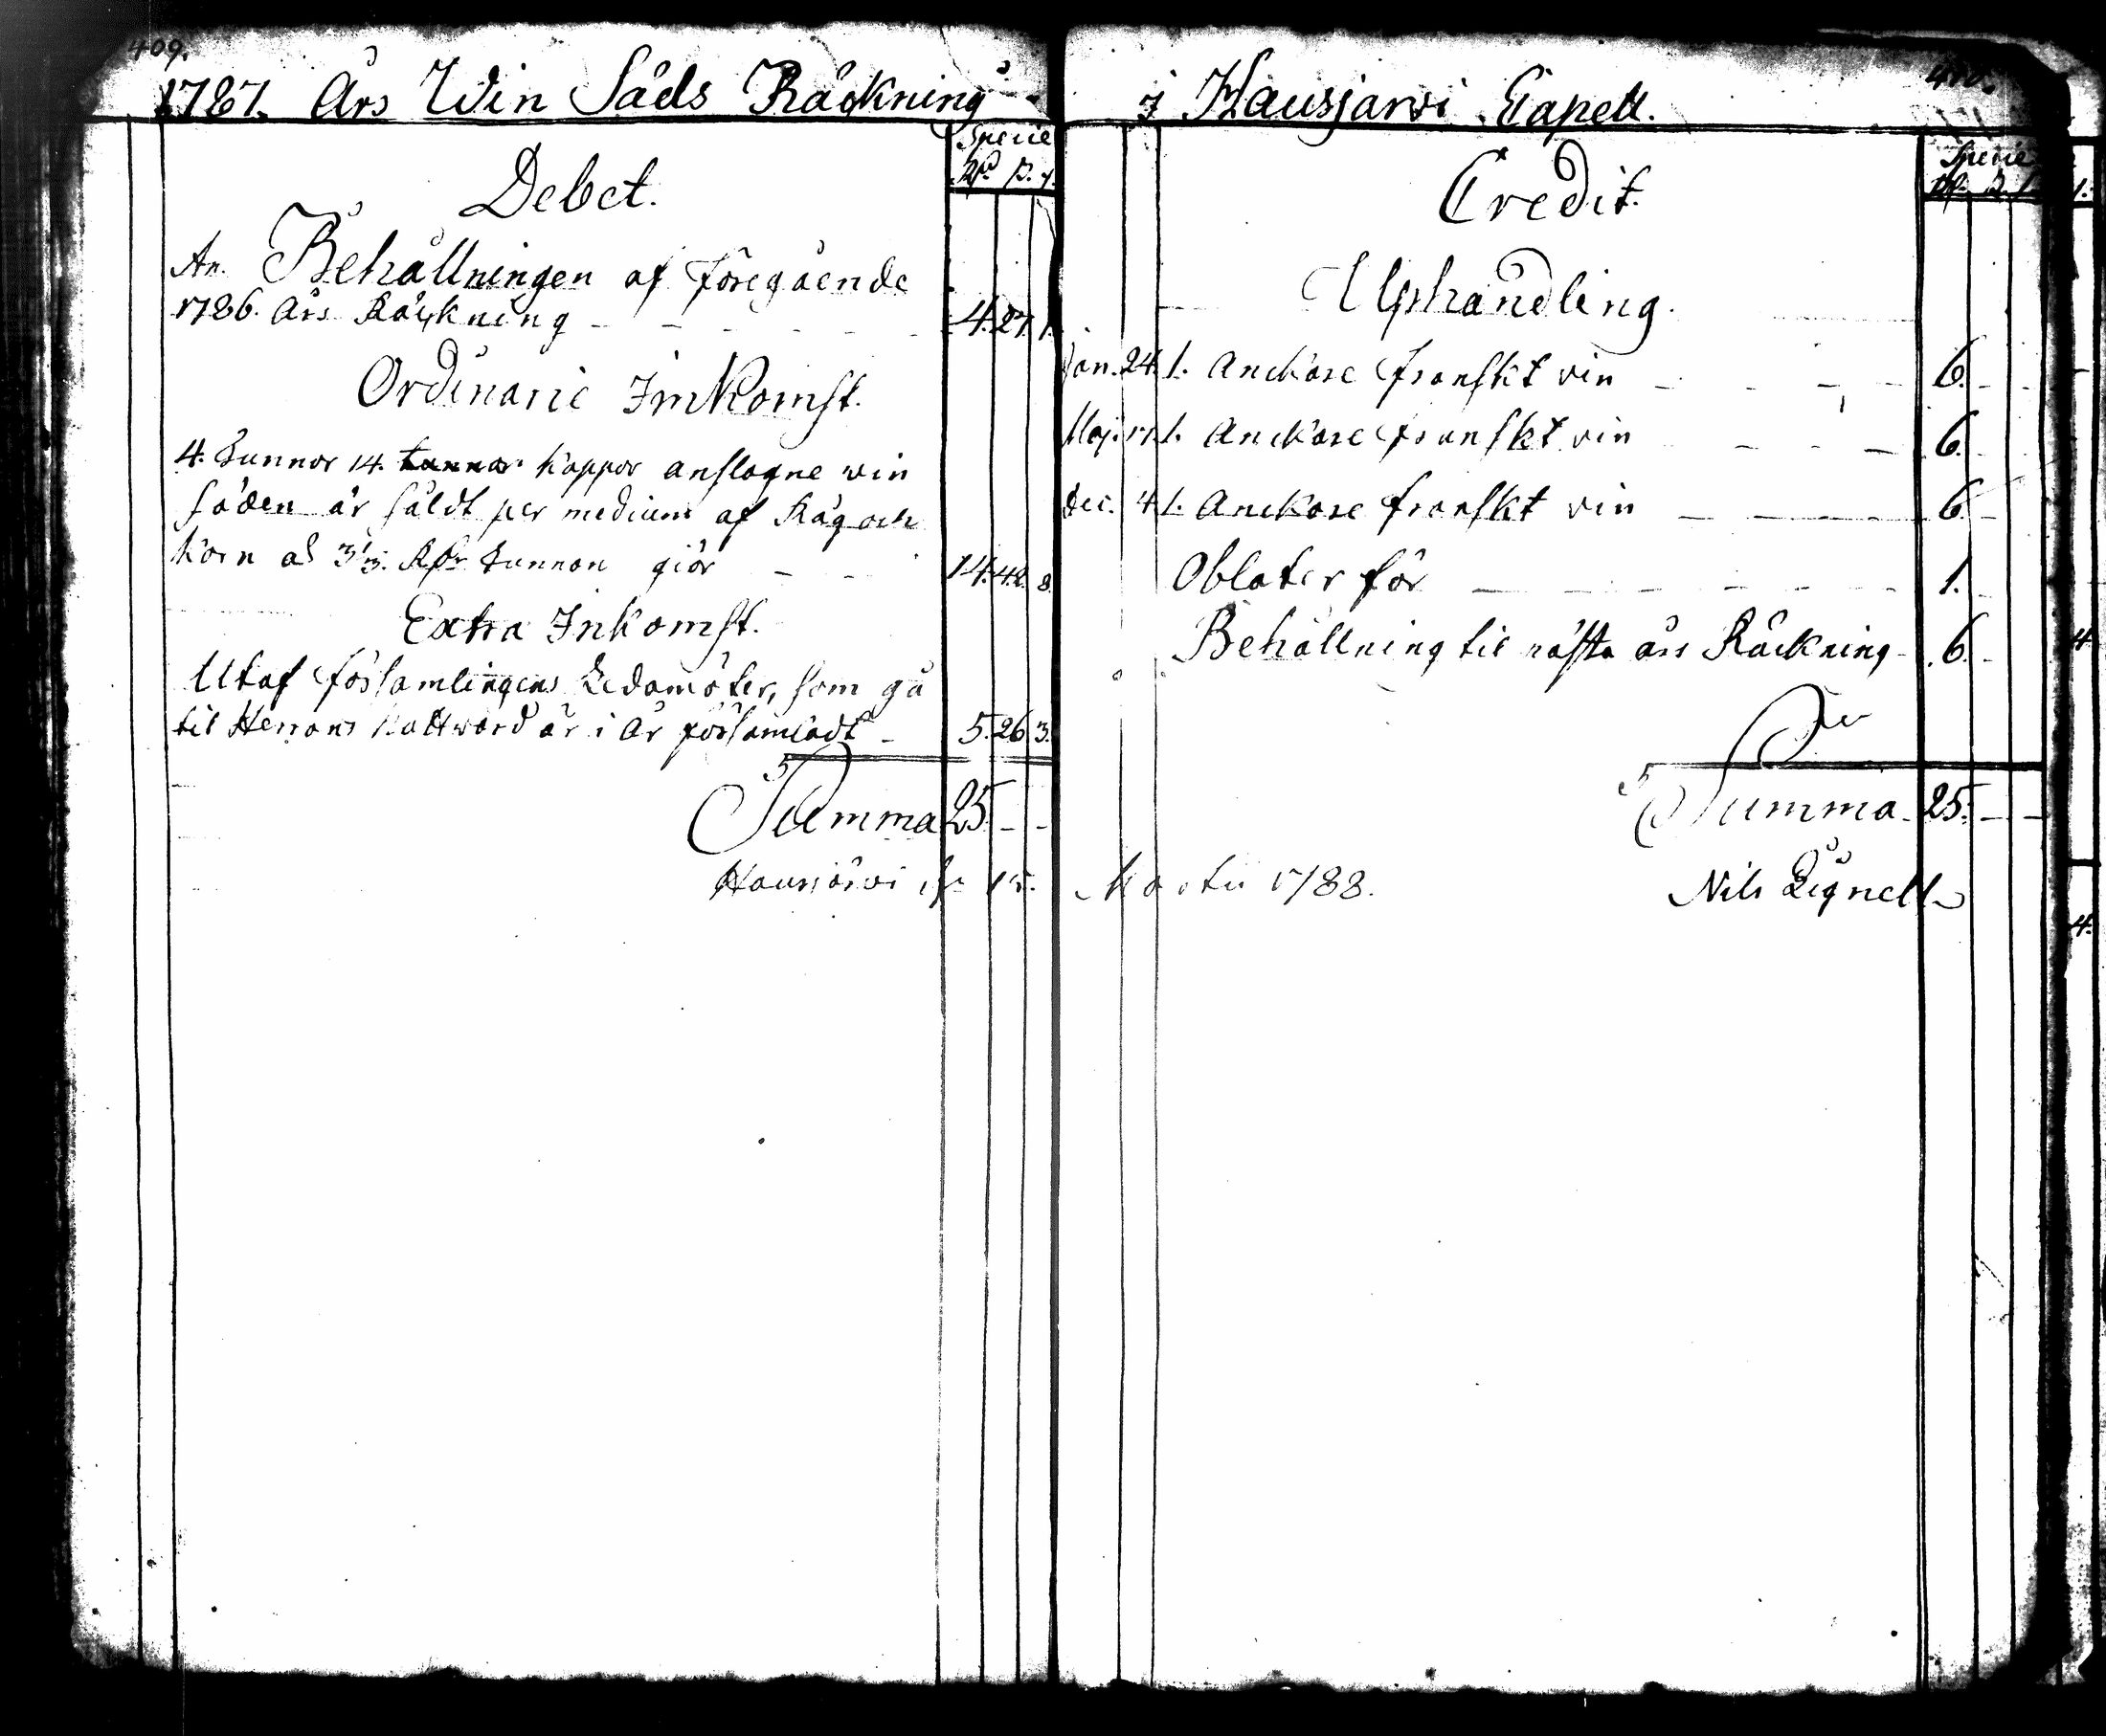 409.
1787. Års Win Säds Räckning
Specie
Rd. ß. r.
Debet.
An. Behållningen af föregående
1786. Års Räckning - - - - - 4. 27. 1.
Ordinarie Innkomst.
4. Tunnor 14. kappor anslagne win
säden är såldt per medium af Råg och
korn a 3 1/3. Rdr Tunnan giör - - - 14. 42. 8.
Extra Inkomst.
Utaf församlingens Ledamöter, som gå
til Herrans Nattward är i År församladt - 5. 26. 3.
Summa 25. - -
Hausjärwi d. 15.
410.
i Hausjarwi Capell.
Specie
Rd. ß. r.
Credit.
Uphandling.
Jan. 24. 1. Anckare franskt vin - - - - 6. -
Maj. 17. 1. Anckare franskt vin - - - 6.
Dec. 4. 1. Anckare franskt vin - - - - 6. -
Oblater för - - - - - - - 1. -
Behållning til nästa års Räckning - 6. -
Summa - 25. - -
Martii 1788.
Nils Lignell